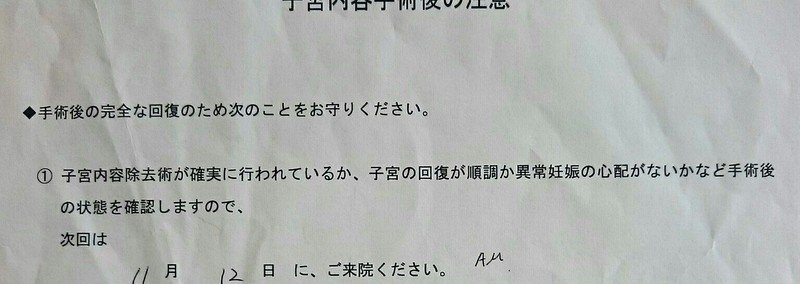 子宮内容手術後の注意
◆手術後の完全な回復のため次のことをお守りください。
① 子宮内容除去術が確実に行われているか、子宮の回復が順調か異常妊娠の心配がないかなど手術後
の状態を確認しますので、
次回は
11 月 12 日 に、ご来院ください。 AM